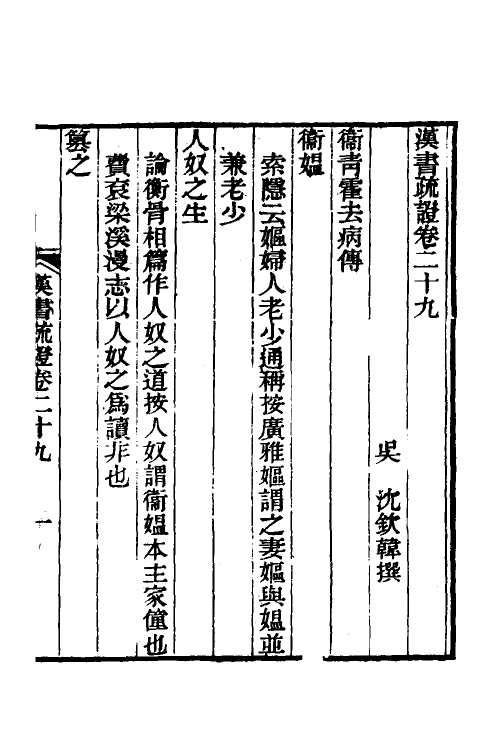 漢書疏證卷二十九
吳 沈欽韓撰
衞青霍去病傳
衞媼
索隱云嫗婦人老少通稱按廣雅嫗謂之妻嫗與媼並
兼老少
人奴之生
論衡骨相篇作人奴之道按人奴謂衞媼本主家僮也
費袞梁溪漫志以人奴之爲讀非也
篡之
漢書疏證卷二十九 一